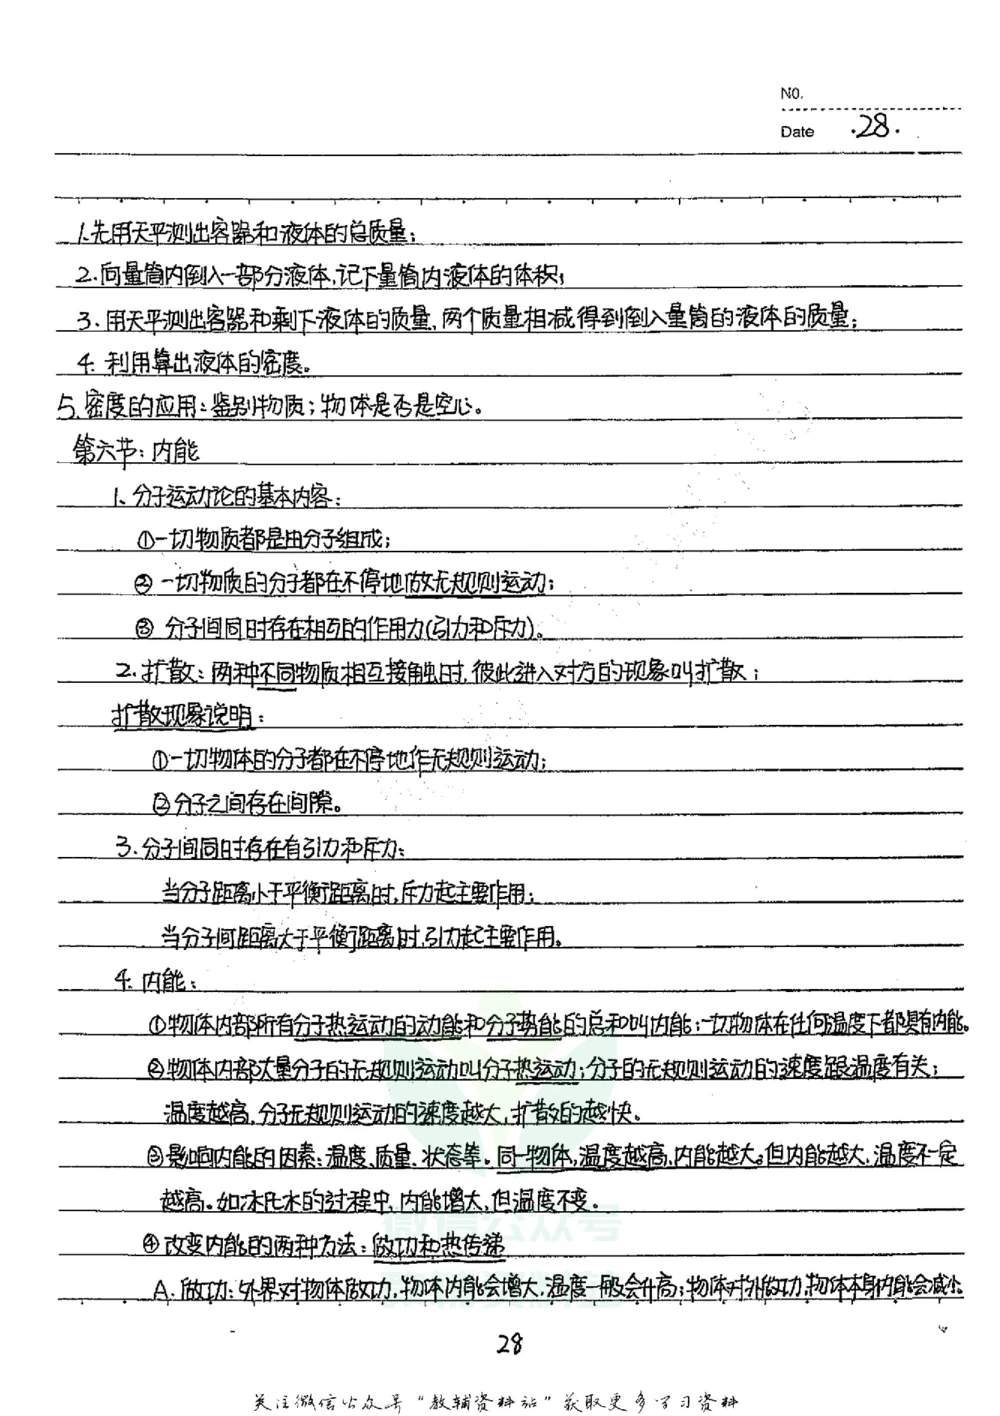 NO.
Date .28.
1.先用天平测出容器和液体的总质量;
2.向量筒内倒入一部分液体,记下量筒内液体的体积;
3.用天平测出容器和剩下液体的质量,两个质量相减得到倒入量筒的液体的质量;
4.利用算出液体的密度。
5.密度的应用:鉴别物质;物体是否是空心。
第六节:内能
1、分子运动论的基本内容:
①一切物质都是由分子组成;
②一切物质的分子都在不停地做无规则运动;
③分子间同时存在相互的作用力(引力和斥力)。
2.扩散:两种不同物质相互接触时,彼此进入对方的现象叫扩散;
扩散现象说明:
①一切物体的分子都在不停地作无规则运动;
②分子之间存在间隙。
3.分子间同时存在有引力和斥力:
当分子距离小于平衡距离时,斥力起主要作用;
当分子间距离大于平衡距离时,引力起主要作用。
4.内能:
①物体内部所有分子热运动的动能和分子势能的总和叫内能;一切物体在任何温度下都具有内能。
②物体内部大量分子的无规则运动叫分子热运动;分子的无规则运动的速度跟温度有关;
温度越高,分子无规则运动的速度越大,扩散的越快。
③影响内能的因素:温度、质量、状态等。同一物体,温度越高,内能越大。但内能越大,温度不一定
越高。如冰化水的过程中,内能增大,但温度不变。
④改变内能的两种方法:做功和热传递
A.做功:外界对物体做功,物体内能会增大,温度一般会升高;物体对外做功,物体本身内能会减小。
28
关注微信公众号“教辅资料站”获取更多学习资料
微信公众号